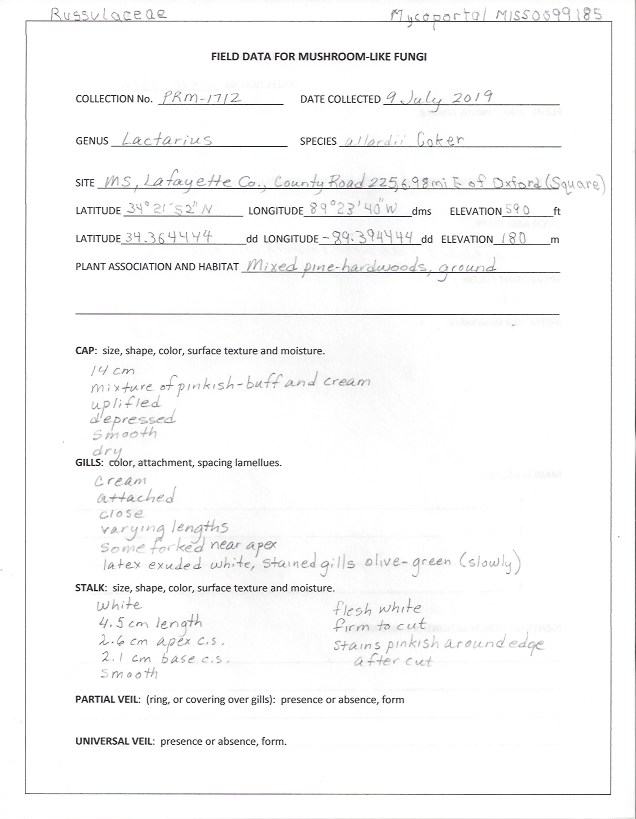 Russulaceae Mycoportal MISS0099185
FIELD DATA FOR MUSHROOM-LIKE FUNGI
COLLECTION No. PRM-1712 DATE COLLECTED 9 July 2019
GENUS Lactarius SPECIES allardii Coker
SITE MS, Lafayette Co., County Road 225, 6.98 mi E of Oxford (Square)
LATITUDE 34°21'52" N LONGITUDE 89°23'40" W dms ELEVATION 590 ft
LATITUDE 34.364444 dd LONGITUDE -89.394444 dd ELEVATION 180 m
PLANT ASSOCIATION AND HABITAT Mixed pine-hardwoods, ground
CAP: size, shape, color, surface texture and moisture.
14 cm
mixture of pinkish-buff and cream
uplifled
depressed
smooth
dry
GILLS: color, attachment, spacing lamellues.
cream
attached
close
varying lengths
some forked near apex
latex exuded white, stained gills olive-green (slowly)
STALK: size, shape, color, surface texture and moisture.
white
4.5 cm length
2.6 cm apex c.s.
2.1 cm base c.s.
smooth
flesh white
firm to cut
stains pinkish around edge
after cut
PARTIAL VEIL: (ring, or covering over gills): presence or absence, form
UNIVERSAL VEIL: presence or absence, form.